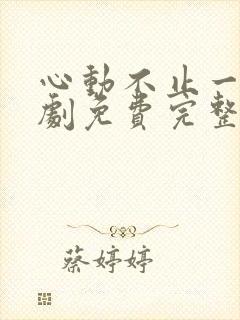 心動不止一
劇免費完整
蔡婷婷